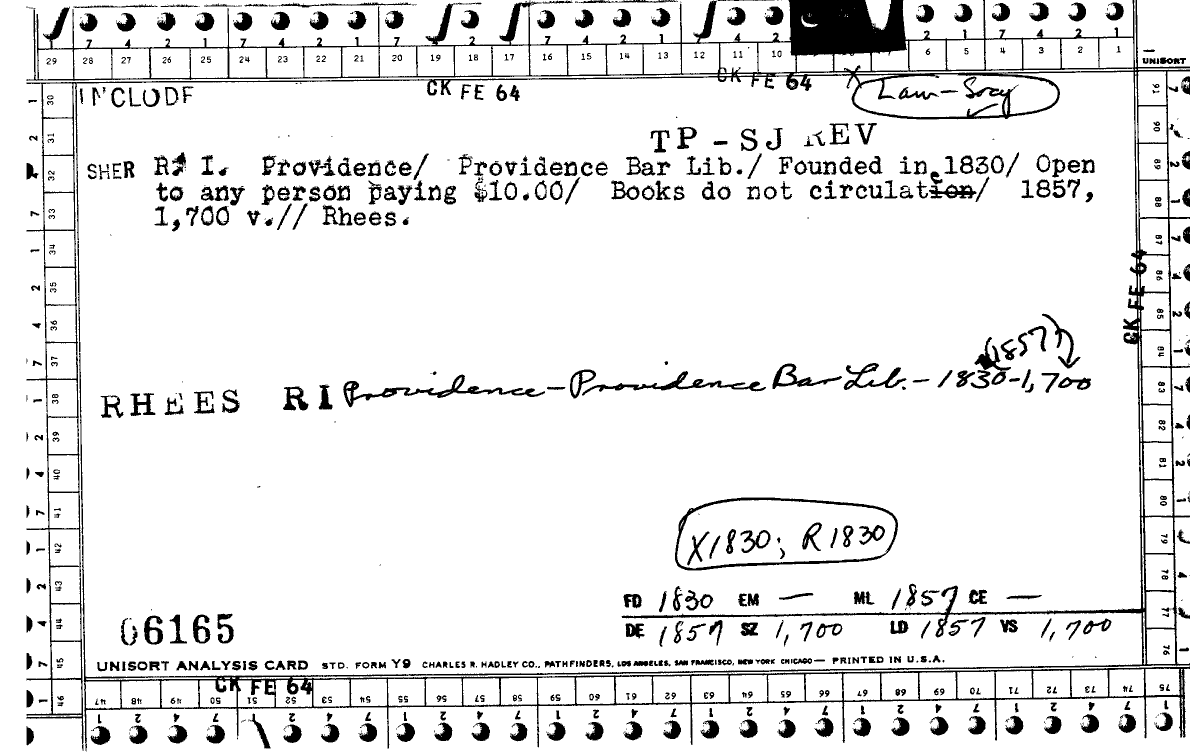 7 4 2 1 7 4 2 1 7 2 1 4 2 2 1 7 4 2 1
29 28 27 26 25 24 23 22 21 20 19 18 17 16 15 14 13 12 11 10 6 5 4 3 2 1
UNISORT
INCLUDE CK FE 64 CK FE 64 X Law-Socy
TP-SJ REV
SHER R. I. Providence/ Providence Bar Lib./ Founded in 1830/ Open
to any person paying $10.00/ Books do not circulation/ 1857,
1,700 v.// Rhees.
CK FE 64
(1857)
RHEES RI Providence-Providence Bar Lib.-1830-1,700
X1830; R1830
FD 1830 EM — ML 1857 CE —
06165
DE 1857 SZ 1,700 LD 1857 VS 1,700
UNISORT ANALYSIS CARD STD. FORM Y9 CHARLES R. HADLEY CO., PATHFINDERS, LOS ANGELES, SAN FRANCISCO, NEW YORK CHICAGO— PRINTED IN U.S.A.
CK FE 64
47 48 49 50 51 52 53 54 55 56 57 58 59 60 61 62 63 64 65 66 67 68 69 70 71 72 73 74 75
30 31 32 33 34 35 36 37 38 39 40 41 42 43 44 45 46
91 90 89 88 87 86 85 84 83 82 81 80 79 78 77 76